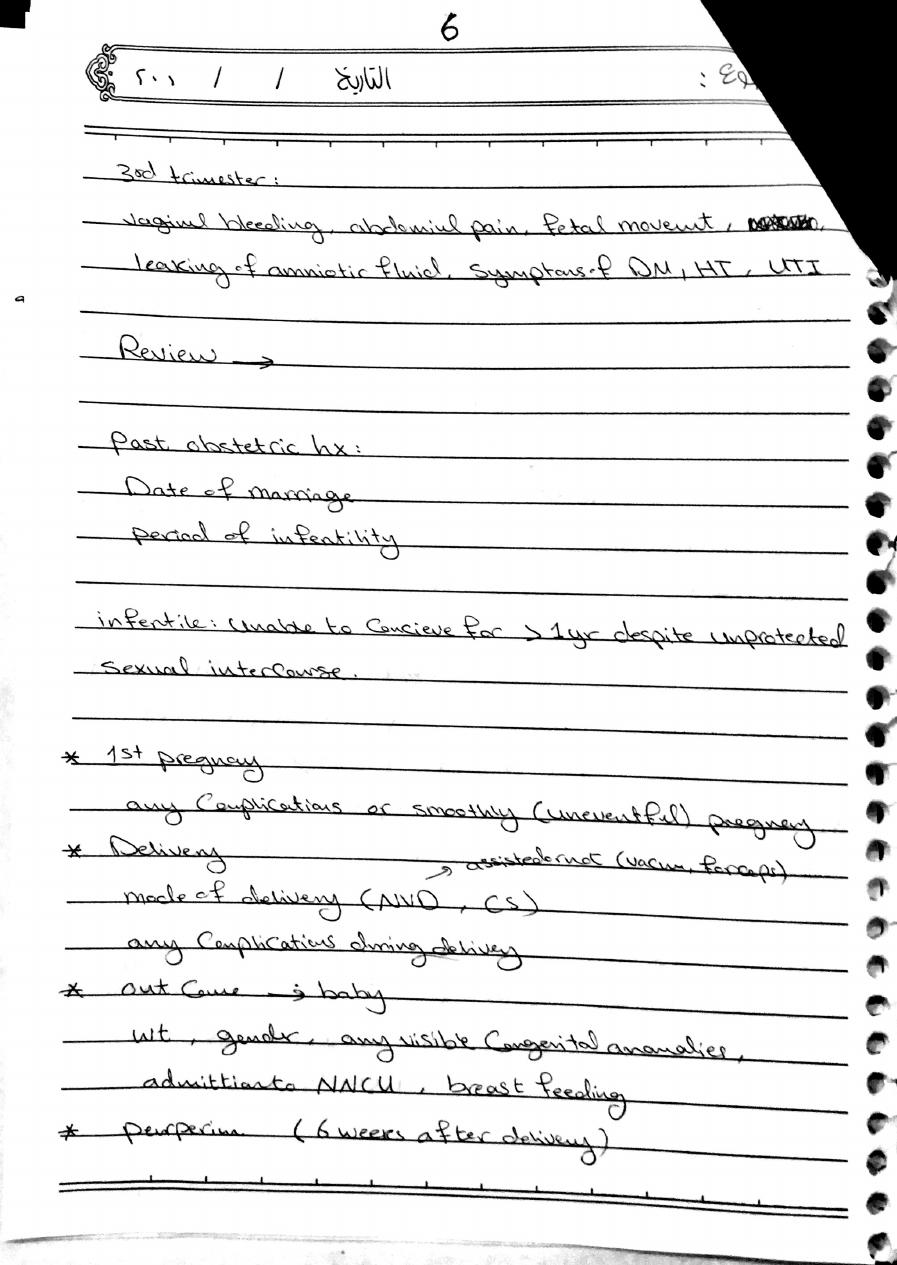 6
التاريخ / / ٢٠٠١
3rd trimester:
vaginal bleeding, abdominl pain, fetal movemt,
leaking of amniotic fluid, Symptoms of DM, HT, UTI
Review →
Past obstetric hx:
Date of marriage
period of infertility
infertile: unable to Concieve for > 1yr despite unprotected
Sexual intercourse.
* 1st pregnay
any Complications or smoothly (uneventful) pregnery
* Delivery
→ assisted or not (vacum, forceps)
mode of delivery (NVD, CS)
any Complications during delivery
* out Come → baby
wt, gender, any visible Congenital anomalies,
admittion to NNCU, breast feeding
* peurperium (6 weeks after delivery)